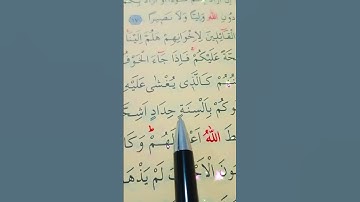 دُونِ اللهِ وَلِيًّا وَّلَا نَصِيْرًا ١٧
الْقَآئِلِيْنَ لِاِخْوَانِهِمْ هَلُمَّ اِلَيْنَا
حَّةً عَلَيْكُمْ ۖ فَاِذَا جَآءَ الْخَوْفُ
يُنُهُمْ كَالَّذِيْ يُغْشٰى عَلَيْهِ
وْكُمْ بِاَلْسِنَةٍ حِدَادٍ اَشِحَّ
طَ اللهُ اَعْمَالَهُمْ ؕ وَكَا
بُوْنَ الْاَحْزَابَ لَمْ يَذْهَ